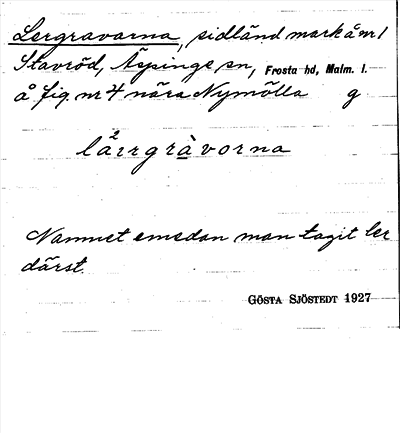 Lergravarna, sidländ mark å nr 1
Stavröd, Äspinge sn, Frosta hd, Malm. l.
å fig. nr 4 nära Nymölla g.
2
lärrgràvorna
Namnet emedan man tagit ler
därst.
GÖSTA SJÖSTEDT 1927